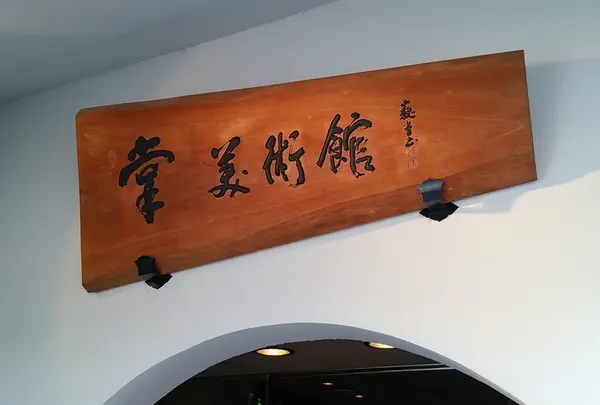 掌美術館